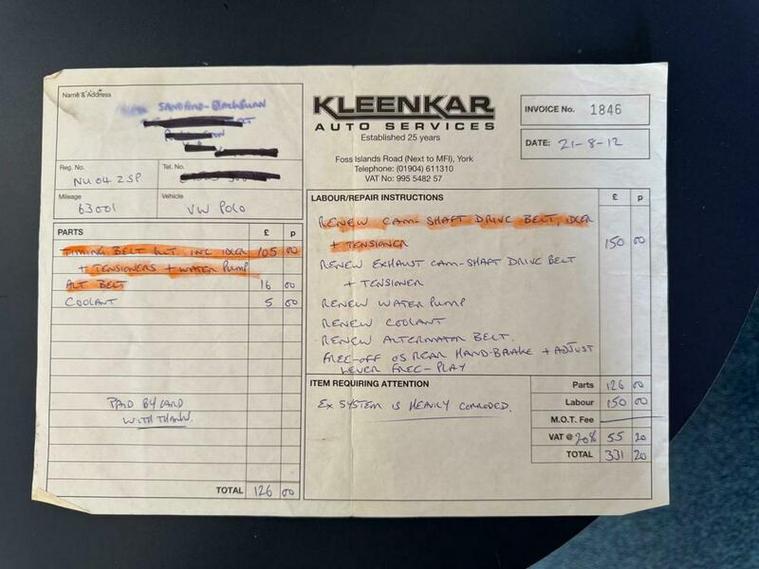 Name & Address
SANDFORD-BLACKBURN
Reg. No.
NU04 ZSP
Tel. No.
Mileage
63001
Vehicle
VW POLO
PARTS £ P
TIMING BELT KIT INC IDLER 105 00
+ TENSIONERS + WATER PUMP
ALT BELT 16 00
COOLANT 5 00
PAID BY CARD
WITH THANKS.
TOTAL 126 00
KLEENKAR
AUTO SERVICES
Established 25 years
Foss Islands Road (Next to MFI), York
Telephone: (01904) 611310
VAT No: 995 5482 57
INVOICE No. 1846
DATE: 21-8-12
LABOUR/REPAIR INSTRUCTIONS £ P
RENEW CAM-SHAFT DRIVE BELT, IDLER
+ TENSIONER 150 00
RENEW EXHAUST CAM-SHAFT DRIVE BELT
+ TENSIONER
RENEW WATER PUMP
RENEW COOLANT
RENEW ALTERNATOR BELT.
FREE-OFF OS REAR HAND-BRAKE + ADJUST
LEVER FREE-PLAY
ITEM REQUIRING ATTENTION
EX SYSTEM IS HEAVILY CORRODED.
Parts 126 00
Labour 150 00
M.O.T. Fee
VAT @ 20% 55 20
TOTAL 331 20